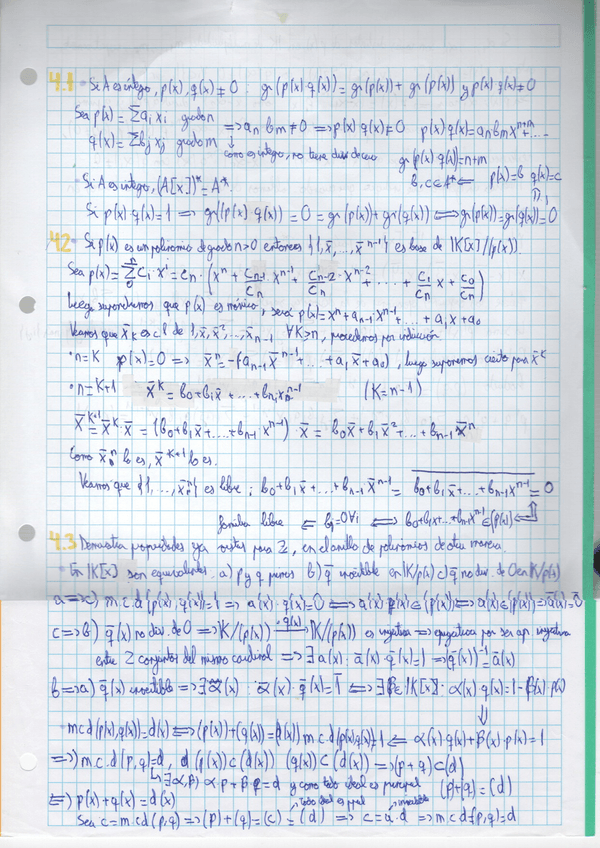 4.1 • Si A es íntegro, p(x), q(x) ≠ 0 gr(p(x) q(x)) = gr(p(x)) + gr(p(x)) y p(x) q(x) ≠ 0
Sea p(x) = Σ ai xi grado n
q(x) = Σ bj xj grado m ⟹ an bm ≠ 0 ⟹ p(x) q(x) ≠ 0 p(x) q(x) = an bm x^{n+m} + ...
como es íntegro, no tiene div de cero gr(p(x) q(x)) = n+m
• Si A es íntegro, (A[x])* = A* b, c ∈ A* ⟸ p(x) = b q(x) = c
Si p(x) q(x) = 1 ⟹ gr((p(x) q(x)) = 0 = gr(p(x)) + gr(q(x)) ⟺ gr(p(x)) = gr(q(x)) = 0
4.2 • Si p(x) es un polinomio de grado n>0 entonces {1, x̄, ..., x̄^{n-1}} es base de K[x]/(p(x)).
Sea p(x) = Σ_0^n ci x^i = cn · (x^n + c_{n-1}/cn x^{n-1} + c_{n-2}/cn · x^{n-2} + ... + c1/cn x + c0/cn)
luego supondremos que p(x) es mónico, será p(x) = x^n + a_{n-1} x^{n-1} + ... + a1 x + a0
Veamos que x̄^k es c.l de 1, x̄, x̄^2, ..., x̄^{n-1} ∀K≥n, procedemos por inducción
• n=K p(x) = 0 ⟹ x̄^n = -(a_{n-1} x̄^{n-1} + ... + a1 x̄ + a0), luego suponemos cierto para x̄^K
• n=K+1 x̄^K = b0 + b1 x̄ + ... + b_{n-1} x^{n-1} (K=n-1)
x̄^{K+1} = x̄^K · x̄ = (b0 + b1 x̄ + ... + b_{n-1} x^{n-1}) · x̄ = b0 x̄ + b1 x̄^2 + ... + b_{n-1} x̄^n
Como x̄^n lo es, x̄^{K+1} lo es.
Veamos que {1, ..., x̄^{n-1}} es libre; b0 + b1 x̄ + ... + b_{n-1} x̄^{n-1} = b0 + b1 x + ... + b_{n-1} x^{n-1} = 0
familia libre ⟸ bi = 0 ∀i ⟺ b0 + b1 x + ... + b_{n-1} x^{n-1} ∈ (p(x)) ⟸
4.3 Demuestra propiedades ya vistas para Z, en el anillo de polinomios de otra manera.
• En K[x] son equivalentes. a) p y q primos b) q̄ invertible en K/p(x) c) q̄ no div. de 0 en K/p(x)
a ⟹ c) m.c.d(p(x), q(x)) = 1 ⟹ ā(x) · q̄(x) = 0 ⟺ a(x) q(x) ∈ (p(x)) ⟹ a(x) ∈ (p(x)) ⟹ ā(x) = 0̄
c ⟹ b) q̄(x) no div. de 0 ⟹ K/(p(x)) →·q(x) K/(p(x)) es inyectiva ⟹ epiyectiva por ser ap. inyectiva
entre 2 conjuntos del mismo cardinal ⟹ ∃ ā(x) · ā(x) · q̄(x) = 1 ⟹ (q̄(x))^{-1} = ā(x)
b ⟹ a) q̄(x) invertible ⟹ ∃ ᾱ(x) · ᾱ(x) · q̄(x) = 1̄ ⟺ ∃ β ∈ K[x] · α(x) · q(x) = 1 - β(x) · p(x)
• mcd(p(x), q(x)) = d(x) ⟺ (p(x)) + (q(x)) = (d(x)) m.c.d(p(x), q(x)) = 1 ⟸ α(x) q(x) + β(x) · p(x) = 1
⟹) m.c.d(p, q) = d, (p(x)) ⊂ (d(x)) (q(x)) ⊂ (d(x)) ⟹ (p + q) ⊂ (d)
↳ ∃ α, β) α · p + β · q = d y como todo ideal es principal (p) + (q) = (d)
⟸) p(x) + q(x) = d(x) todo ideal es ppal invertible
Sea c = m.c.d(p, q) ⟹ (p) + (q) = (c) = (d) ⟹ c = a · d ⟹ m c d(p, q) = d